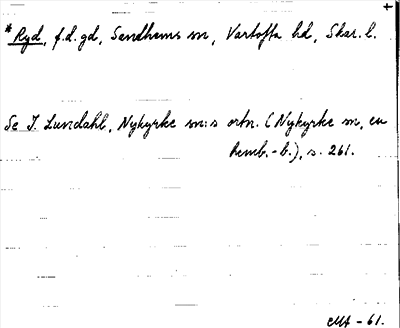 +
* Ryd, f.d. gd, Sandhems sn, Vartofta hd, Skar. l.
Se I. Lundahl, Nykyrke sn:s ortn. (Nykyrke sn, en
hemb.-b.), s. 261.
CMA - 61.